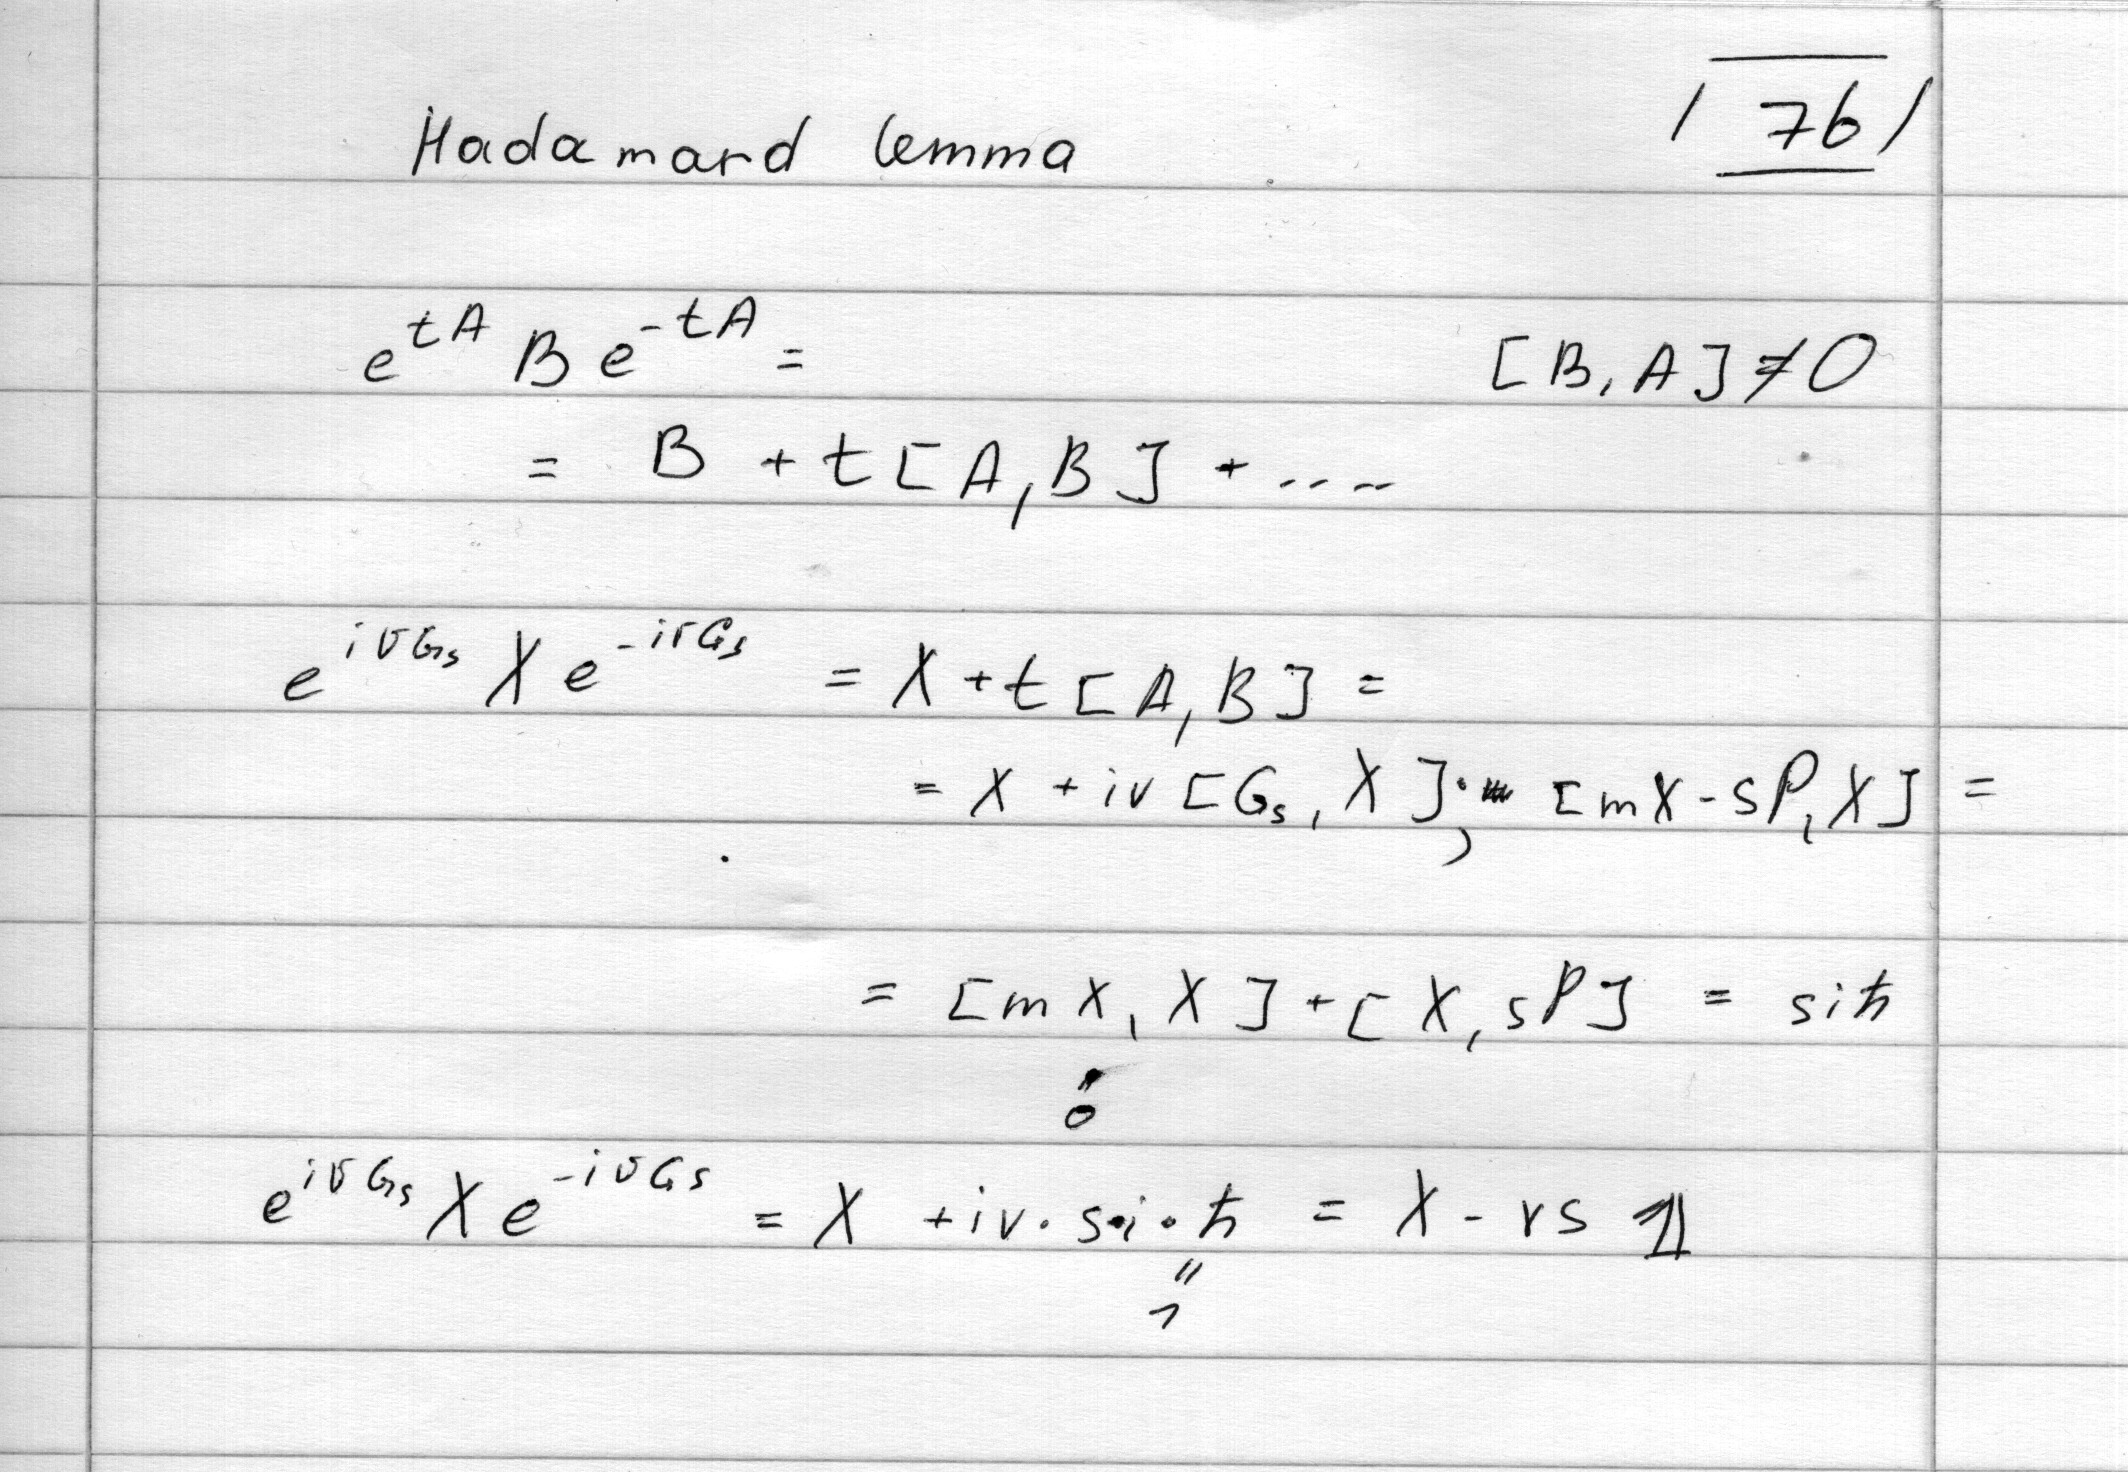 Hadamard lemma
/76/
e^{tA} B e^{-tA} =
[B, A] ≠ 0
= B + t[A, B] + ....
e^{ivG_s} X e^{-ivG_s} = X + t[A, B] =
= X + iv[G_s, X]; [mX - sP, X] =
= [mX, X] + [X, sP] = siħ
"
0
e^{ivG_s} X e^{-ivG_s} = X + iv · s · i · ħ = X - vs 𝟙
"
1